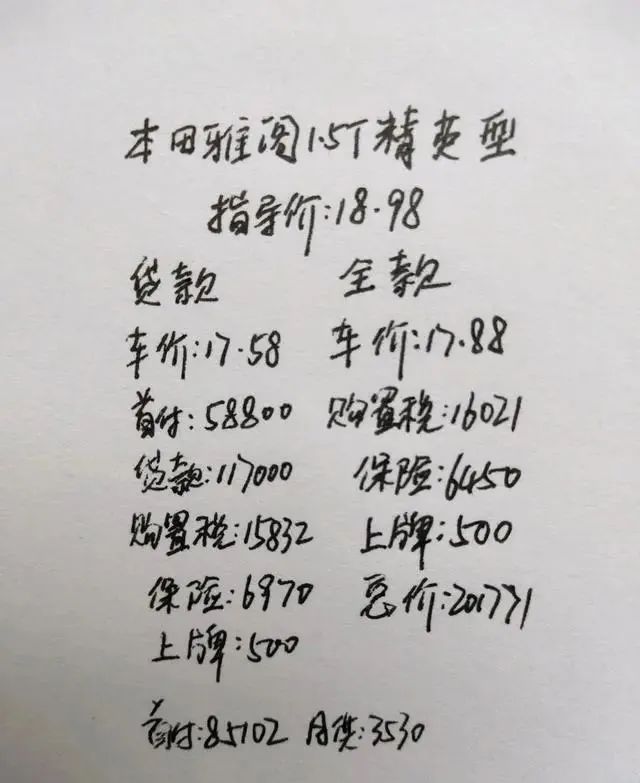 本田雅阁1.5T精英型
指导价:18.98
贷款 全款
车价:17.58 车价:17.88
首付:58800 购置税:16021
贷款:117000 保险:6450
购置税:15832 上牌:500
保险:6970 总价:201771
上牌:500
首付:85102 月供:3530